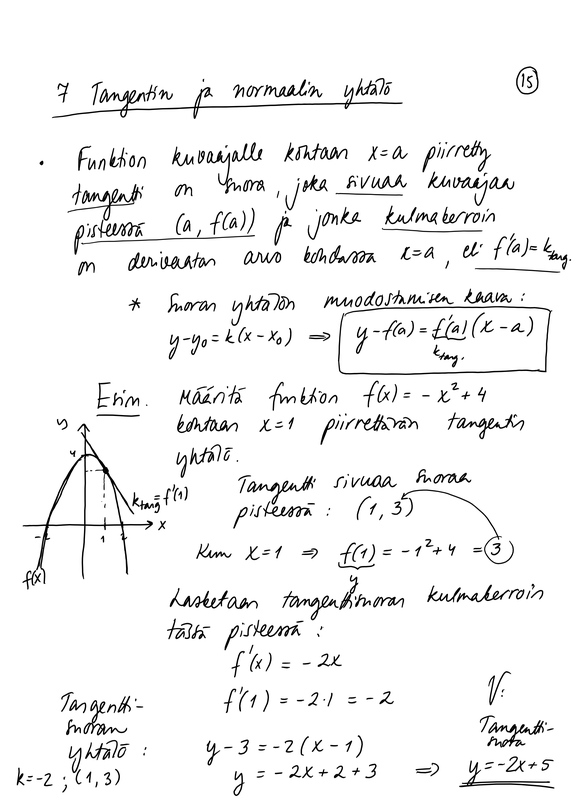 7 Tangentin ja normaalin yhtälö
15
• Funktion kuvaajalle kohtaan x=a piirretty
tangentti on suora, joka sivuaa kuvaajaa
pisteessä (a, f(a)) ja jonka kulmakerroin
on derivaatan arvo kohdassa x=a, eli f'(a)=k_tang.
* Suoran yhtälön muodostamisen kaava:
y-y₀=k(x-x₀) ⇒ y-f(a)=f'(a)(x-a)
k_tang.
Esim. Määritä funktion f(x)=-x²+4
kohtaan x=1 piirrettävän tangentin
yhtälö.
y
4
k_tang=f'(1)
x
-2
1
2
f(x)
Tangentti sivuaa suoraa
pisteessä: (1,3)
Kun x=1 ⇒ f(1) = -1²+4 = 3
y
Lasketaan tangenttisuoran kulmakerroin
tässä pisteessä:
f'(x) = -2x
f'(1) = -2·1 = -2
Tangentti-
suoran
yhtälö:
k=-2 ; (1,3)
y-3 = -2(x-1)
y = -2x+2+3 ⇒
V:
Tangentti-
suora
y=-2x+5